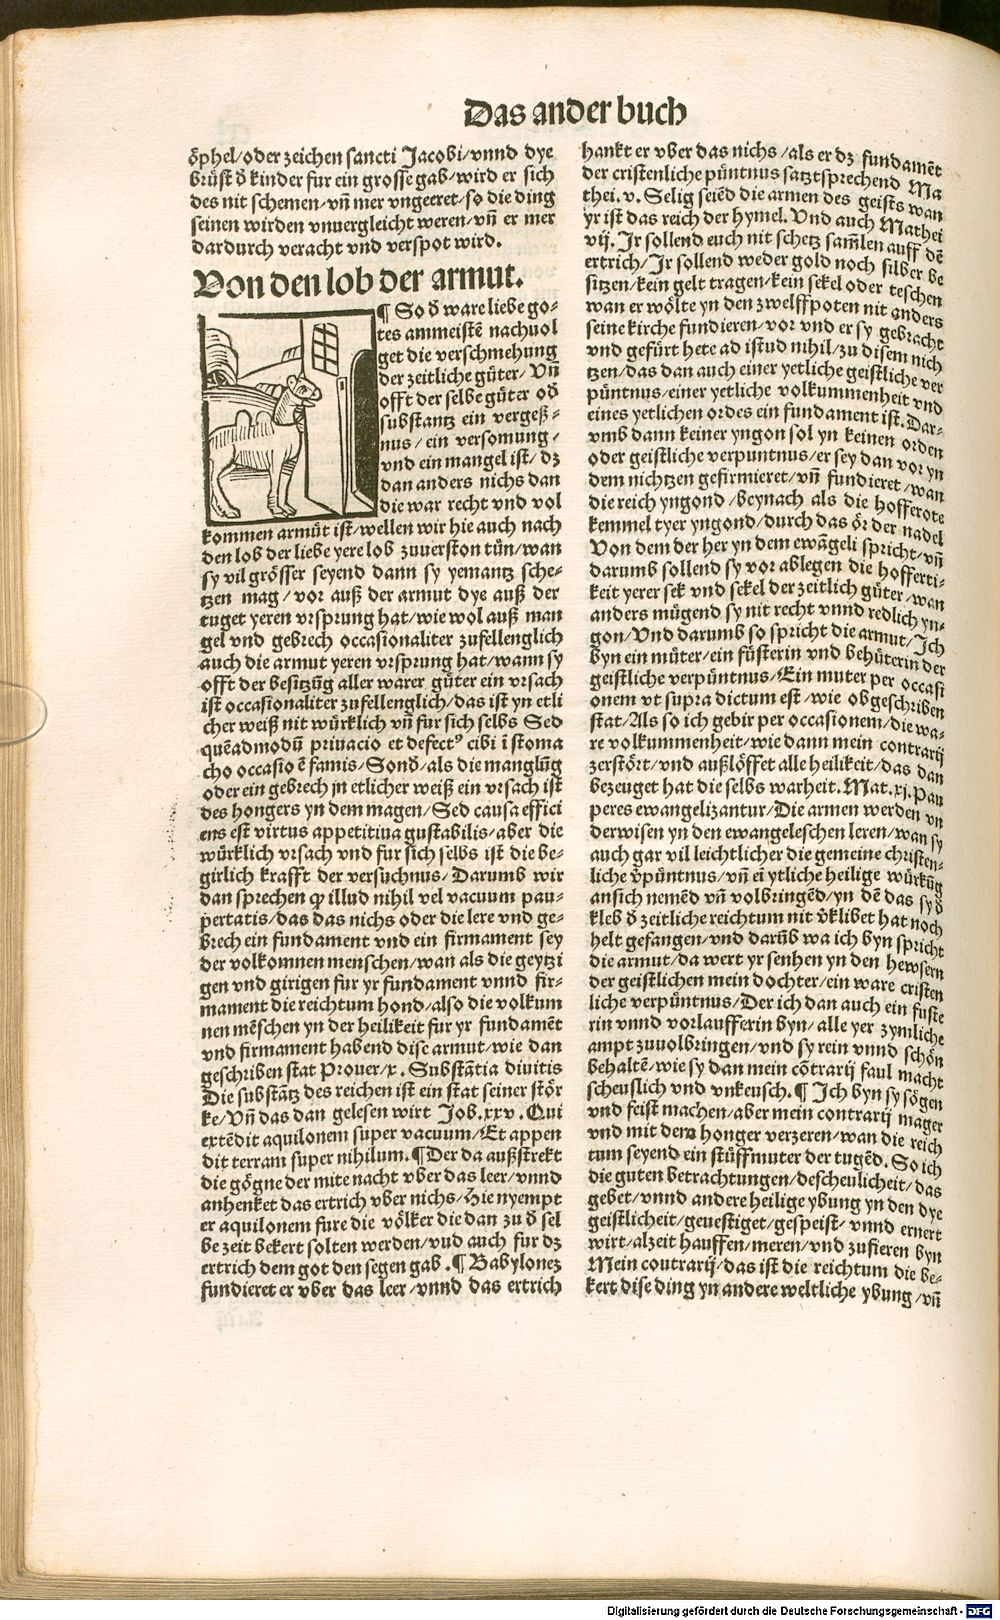 Das ander buch
öphel/oder zeichen sancti Jacobi/vnnd dye
brüst d̄ kinder fur ein grosse gab/wird er sich
des nit schemen/vn̄ mer vngeeret/so die ding
seinen wirden vnuergleicht weren/vn̄ er mer
dardurch veracht vnd verspot wird.
Von den lob der armut.
¶ So d̄ ware liebe go⸗
tes ammeistē nachuol
get die verschmehung
der zeitliche güter/ Vn̄
offt der selbe güter od̄
substantz ein vergeß⸗
nus/ ein versomung/
vnd ein mangel ist/ dz
dan anders nichs dan
die war recht vnd vol
kommen armüt ist/wellen wir hie auch nach
den lob der liebe yere lob zuuerston tün/wan
sy vil grösser seyend dann sy yemantz sche⸗
tzen mag/ vor auß der armut dye auß der
tuget yeren vrsprung hat/wie wol auß man
gel vnd gebrech occasionaliter zufellenglich
auch die armut yeren vrsprung hat/wann sy
offt der besitzūg aller warer güter ein vrsach
ist occasionaliter zufellenglich/das ist yn etli
cher weiß nit würklich vn̄ fur sich selbs Sed
quēadmodū priuacio et defectꝰ cibi ī stoma
cho occasio ē famis/Sond̄/als die manglūg
oder ein gebrech jn etlicher weiß ein vrsach ist
des hongers yn dem magen/Sed causa effici
ens est virtus appetitiua gustabilis/aber die
würklich vrsach vnd fur sich selbs ist die be⸗
girlich krafft der versuchnus/ Darumb wir
dan sprechen ꝙ illud nihil vel vacuum pau⸗
pertatis/das das nichs oder die lere vnd ge⸗
brech ein fundament vnd ein firmament sey
der volkomnen menschen/wan als die geytzi
gen vnd girigen fur yr fundament vnnd fir⸗
mament die reichtum hond/also die volkum
nen mēschen yn der heilikeit fur yr fundamēt
vnd firmament habend dise armut/wie dan
geschriben stat Prouer/x. Substātia diuitis
Die substātz des reichen ist ein stat seiner stör
ke/Vn̄ das dan gelesen wirt Job.xxv. Qui
extēdit aquilonem super vacuum/Et appen
dit terram super nihilum.¶ Der da außstrekt
die gögne der mite nacht vber das leer/vnnd
anhenket das ertrich vber nichs/Hie nyempt
er aquilonem fure die völker die dan zu d̄ sel
be zeit bekert solten werden/vud auch fur dz
ertrich dem got den segen gab.¶ Babylonez
fundieret er vber das leer/vnnd das ertrich
hankt er vber das nichs/als er dz fundamēt
der cristenliche püntnus satztsprechend Ma
thei.v. Selig seiēd die armen des geists wan
yr ist das reich der hymel. Vnd auch Mathei
vij. Jr sollend euch nit schetz sam̄len auff dē
ertrich/Jr sollend weder gold noch silber be
sitzen/kein gelt tragen/kein sekel oder teschen
wan er wölte yn den zwelffpoten nit anders
seine kirche fundieren/vor vnd er sy gebracht
vnd gefürt hete ad istud nihil/zu disem nich
tzen/das dan auch einer yetliche geistliche ver
püntnus/einer yetliche volkummenheit vnd
eines yetlichen ordes ein fundament ist. Dar⸗
vmb dann keiner yngon sol yn keinen orden
oder geistliche verpuntnus/er sey dan vor yn
dem nichtzen gefirmieret/vn̄ fundieret/wan
die reich yngond/beynach als die hofferote
kemmel tyer yngond/durch das ör der nadel
Von dem der her yn dem ewāgeli spricht/vn̄
darumb sollend sy vor ablegen die hofferti⸗
keit yerer sek vnd sekel der zeitlich güter/wan
anders mügend sy nit recht vnnd redlich yn⸗
gon/Vnd darumb so spricht die armut/Ich
byn ein müter/ein füsterin vnd behüterin der
geistliche verpüntnus/Ein muter per occasi
onem vt supra dictum est/wie obgeschriben
stat/Als so ich gebir per occasionem/die wa⸗
re volkummenheit/wie dann mein contrarij
zerstört/vnd außlöffet alle heilikeit/das dan
bezeuget hat die selbs warheit. Mat.xj.Pau
peres ewangelizantur/Die armen werden vn
derwisen yn den ewangeleschen leren/wan sy
auch gar vil leichtlicher die gemeine christen⸗
liche v̄püntnus/vn̄ eī ytliche heilige würkūg
ansich nemēd vn̄ volbringēd/yn dē das sy d̄
kleb d̄ zeitliche reichtum nit v̄klibet hat noch
helt gefangen/vnd darūb wa ich byn spricht
die armut/da wert yr senhen yn den hewsern
der geistlichen mein dochter/ein ware cristen
liche verpüntnus/Der ich dan auch ein fuste
rin vnnd vorlaufferin byn/alle yer zymliche
ampt zuuolbringen/vnd sy rein vnnd schön
behaltē/wie sy dan mein cōtrarij faul macht
scheuslich vnd vnkeusch.¶ Ich byn sy sögen
vnd feist machen/aber mein contrarij mager
vnd mit dem honger verzeren/wan die reich
tum seyend ein stüffmuter der tugēd. So ich
die guten betrachtungen/descheulicheit/das
gebet/vnnd andere heilige ybung yn den dye
geistlicheit/geuestiget/gespeist/ vnnd ernert
wirt/alzeit hauffen/meren/vnd zufieren byn
Mein coutrarij/das ist die reichtum die be⸗
kert dise ding yn andere weltliche ybung/vn̄
Digitalisierung gefördert durch die Deutsche Forschungsgemeinschaft - DFG